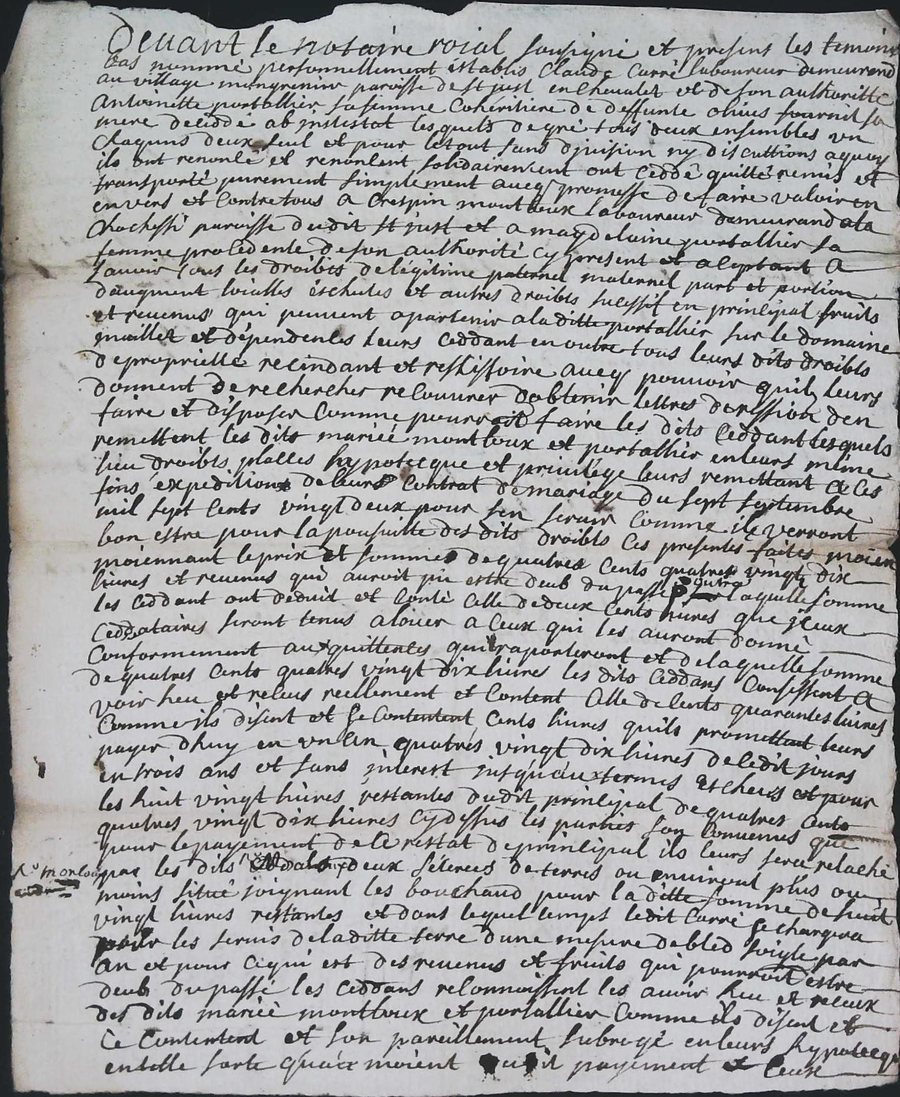 Devant le notaire roial sousigné et presens les temoins
bas nommé personnellement establis Claude Carré laboureur demeurend
au village mongrenier paroisse de st just en chevalet et de son authoritté
Antoinette portallier sa femme coheritiere de deffunte claus fournil sa
mere decedé ab instestat lesquels de gré tous deux ensembles un
chaquuns deux seul et pour letout sans division ny discuttions aquoy
ils ont renoncé et renoncent solidairement ont ceddé quitté remis et
transporté purement simplement avecq promesse defaire valoir en
envers et contre tous a Crespin montloux laboureur demeurand ala
chochessi paroisse dudit st just et a magdelaine portallier sa
femme procedente deson authorité cy present et aceptant A
sauoir tous les droibts de legitime paternel maternel part et portion
daugment loialles eschutes et autres droibts sucessif en prinsipal fruits
et revenus qui peuvent apartenir aladitte portallier sur le domaine
maillet et dépendences leurs ceddant en outre tous leurs dits droibts
de proprietté rescindant et resissoire avecq pouvoir quils leurs
donnent de rechercher recouvrer dobtenir lettres de ression den
faire et disposer comme pourroit faire les dits Ceddant lesquels
remettent les dits mariée montloux et portallier en leurs meme
lieu droibts plasses hypotecque et privilege leurs remettant a ces
fins expeditions de leurs contrat de mariage du sept septembre
mil sept cents vingt deux pour sen servir comme ils verront
bon estre pour la poursuitte des dits droibts ces presentes faites moien
moiennant le prix et sommes de quatres cents quatres vingts dix
livres et revenus qui auroit pu estre deub du passé outre laquelle somme
les ceddant ont deduit et conté celle de deux cents livres que iceux
ceddataires seront tenus alouer a ceux qui les auront donné
conformement aux quittences quil raporteront et de laquelle somme
de quatres cents quatres vingt dix livres les dits ceddans consessent A
voir heu et receus reellement et content celle de cents quarantes livres
comme ils disent et se contentent cents livres quils promettent leurs
payer dhuy en un an quatres vingt dix livres de cedit jours
en trois ans et sans interest jusquaux termes escheus et pour
les huit vingt livres restantes dudit prinsipal de quatres cents
quatres vingt dix livres cydessus les parties son convenus que
pour le payement de ce restat de prinsipal ils leurs sera relaché
par les dits deux seterees de terres ou environt plus ou
moins situé joignant les bouchaud pour la ditte somme de huit
vingt livres restantes et dans lequel temps ledit Carré se chargera
les servis de la ditte terre dune mesure de bled soigle par
an et pour ce qui est des revenus et fruits qui pourroit estre
deub du passé les ceddans reconnoissent les avoir heu et receux
des dits mariée montloux et portallier comme ils disent et
ce contentent et son pareillement subrogé en leurs hypotecque
en telle sorte quaux moient dudit payement et ceux